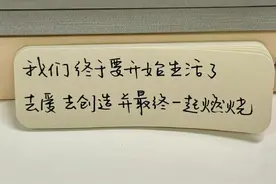 我们终于要开始生活了
去爱 去创造 并最终一起燃烧